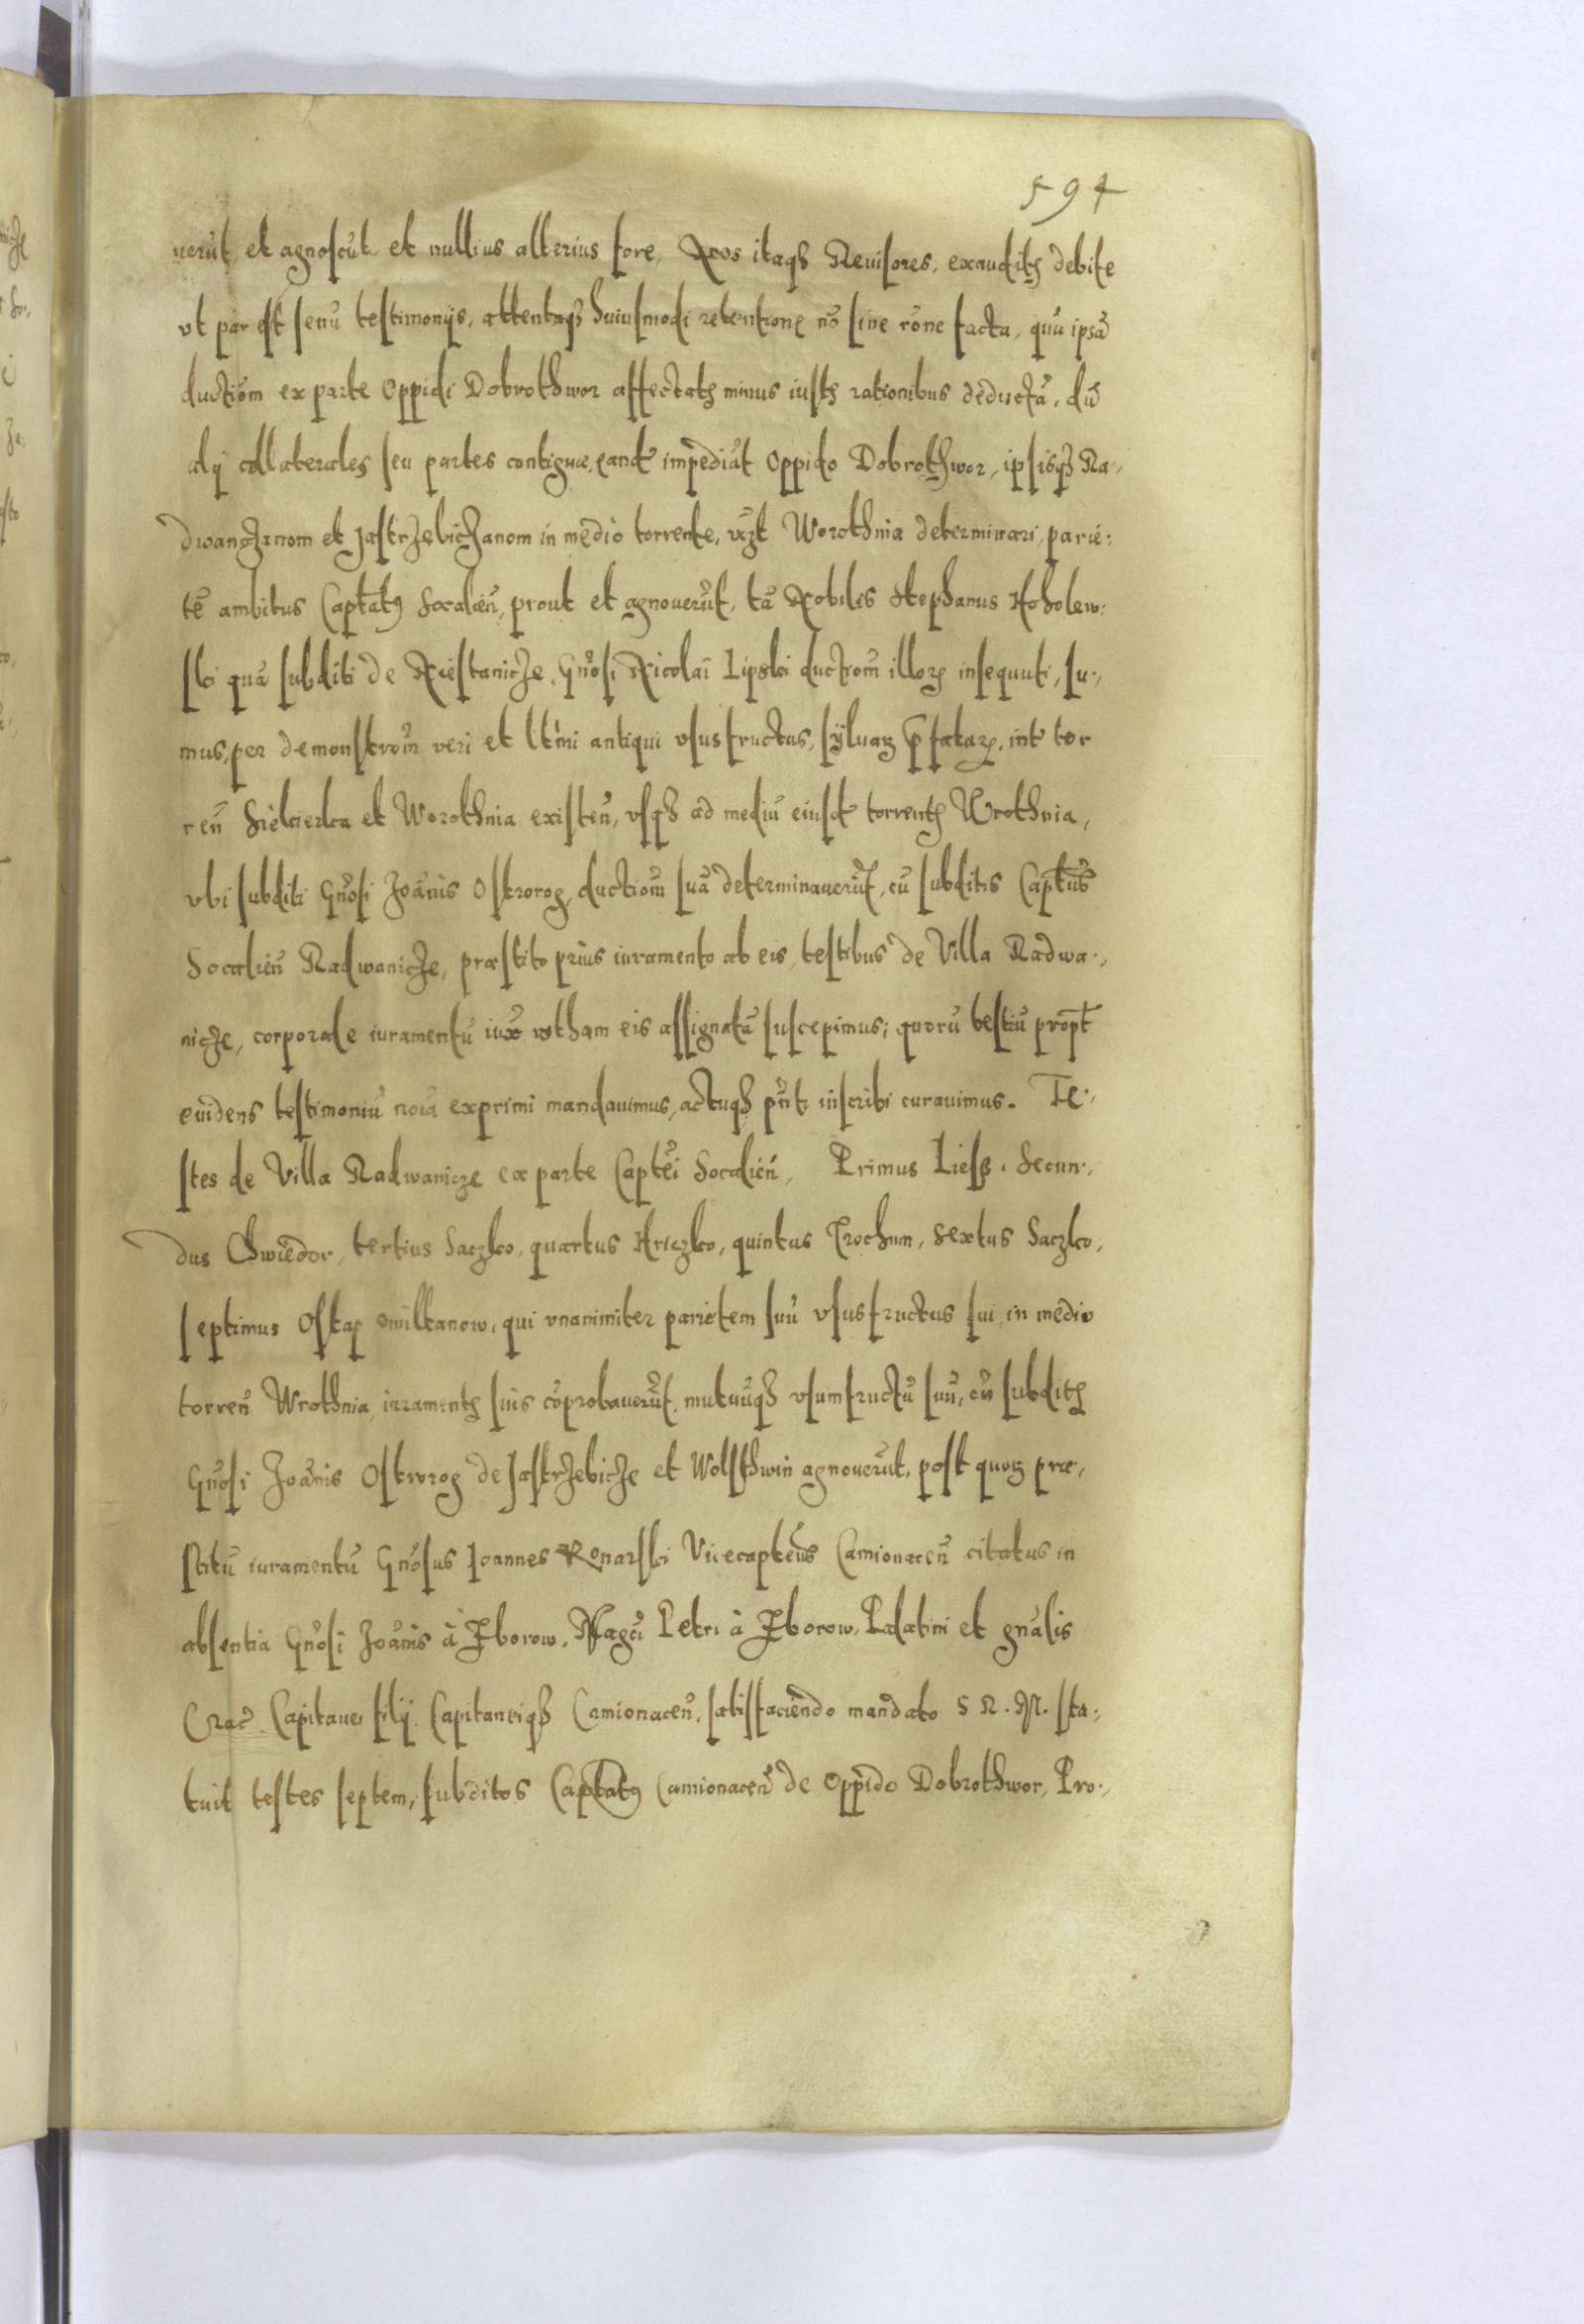 594
uerūt, et agnoscūt et nullius alterius fore, Nos itaqȝ Reuisores, exauditꝭ debite
vt par est senū testimonijs, attentaqȝ huiusmodi retentione nō sine rōne facta, quū ipsā
ductiōm ex parte Oppidi Dobrothwor affectatꝭ minus iustꝭ rationibus deductā, dū
alij collaterales seu partes contiguæ, eand impediāt Oppido Dobrothwor, ipsisqȝ Ra-,
dwanczanom et Jastrzebiczanom in medio torrente, vzt Worothnia determinari, parie:
tē ambitus Captatꝰ Socalieñ, prout et agnouerūt, tā Nobilis Stephanus Hoholew:
ski quā subditi de Niestanicze, Gnosi Nicolai Lipski ductiom illoꝝ insequuti, su-,
mus, per demonstrom veri et lt̃mi antiqui vsusfructus, syluaꝝ p̄fataꝝ, int tor
reñ Sielcierka et Worothnia existeñ, vsqȝ ad mediū eiusd torrentꝭ Wrothnia,
vbi subditi Gnosi Joānis Ostrorog, ductiom suā determinauerūt, cū subditis Captus
Socalieñ Radwanicze, præstito prius iuramento ab eis, testibus de Villa Radwa-,
nicze, corporale iuramentū iux rotham eis assignatā suscepimus; quorū testiū propt
euidens testimoniū noīa exprimi mandauimus, actuqȝ pñti inscribi curauimus. Te-,
stes de Villa Radwanicze ex parte Captei Socalieñ, Primus Liesß. Secun-,
dus Chwiedor, tertius Saczko, quartus Hriczko, quintus Trochim, sextus Saczko,
septimus Ostap, qui vnanimiter parietem suū vsusfructus sui in medio
torreñ Wrothnia, iuramentꝭ suis cōprobauerūt, mutuūqȝ vsumfructū suū, cū subditꝭ
Gnosi Joānis Ostrorog de Jastrzebicze et Wolsthwin agnouerūt, post quoꝝ præ-,
stitū iuramentū Gnosus Joannes Konarski Vicecapteus Camionaceñ citatus in
absentia Gnosi Joānis à Zborow, Magci Petri à Zborow, Palatini et gnalis
Crac Capitanei filij Capitaneiqȝ Camionaceñ, satisfaciendo mandato S R. M. sta-,
tuit testes septem, subditos Captatꝰ Camionaceñ de Oppido Dobrothwor, Pro-,